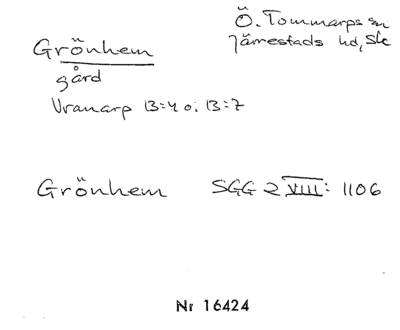 Grönhem
gård
Vranarp 13:4 o. 13:7
Ö. Tommarps sn
Järrestads hd, Sk
Grönhem SGG 2 VIII: 1106
Nr 16424